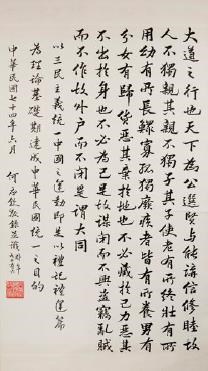 大道之行也天下為公選賢與能講信修睦故
人不獨親其親不獨子其子使老有所終壯有所
用幼有所長鰥寡孤獨廢疾者皆有所養男有
分女有歸貨惡其棄於地也不必藏於己力惡其
不出於身也不必為己是故謀閉而不興盜竊亂賊
而不作故外戶而不閉是謂大同
以三民主義統一中國之運動即是以禮記禮運篇
為理論基礎期達成中華民國統一之目的
中華民國七十四年六月 何應欽敬錄並識